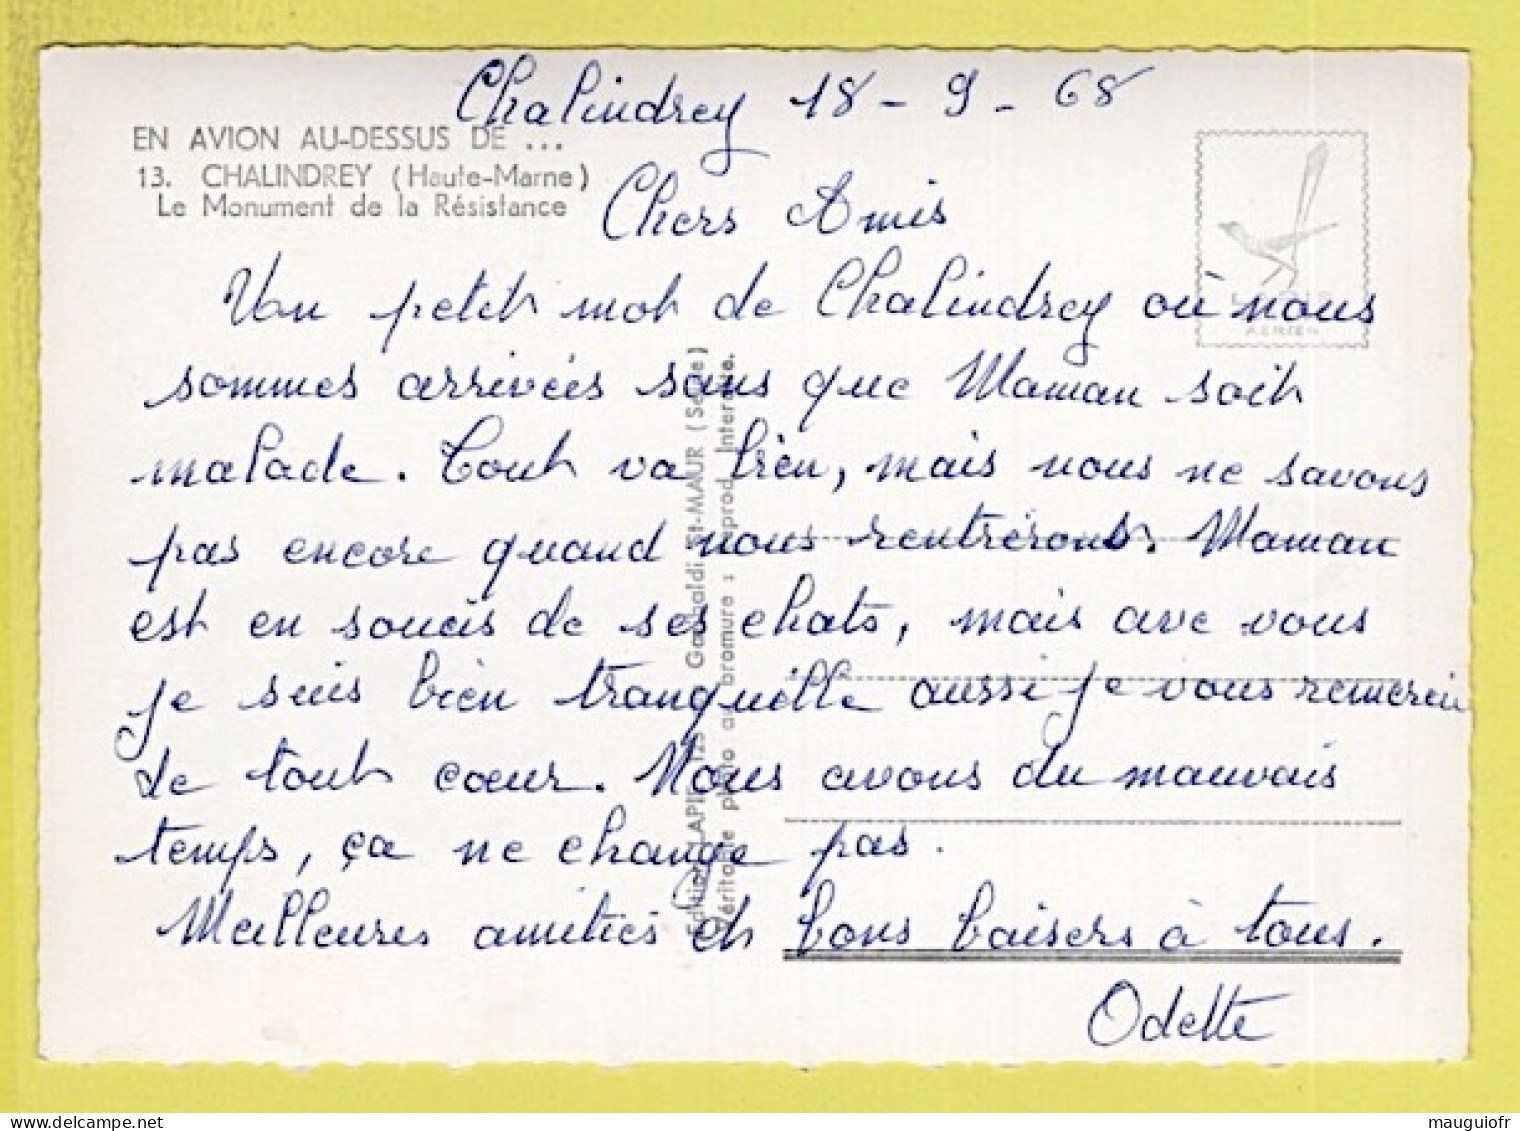 Chalindrey 18 - 9 - 68
EN AVION AU-DESSUS DE ...
13. CHALINDREY (Haute-Marne)
Le Monument de la Résistance
Chers Amis
Un petit mot de Chalindrey où nous
sommes arrivées sans que Maman soit
malade. Tout va bien, mais nous ne savons
pas encore quand nous rentrérons. Maman
est en soucis de ses chats, mais avec vous
je suis bien tranquille aussi je vous remercie
de tout cœur. Nous avons du mauvais
temps, ça ne change pas.
Meilleures amitiés et bons baisers à tous.
Odette
Editions LAPIE 125 Garibaldi St-MAUR (Seine)
Véritable photo au bromure : reprod. Interdite.
LAPIE
AERIEN
mauguiofr